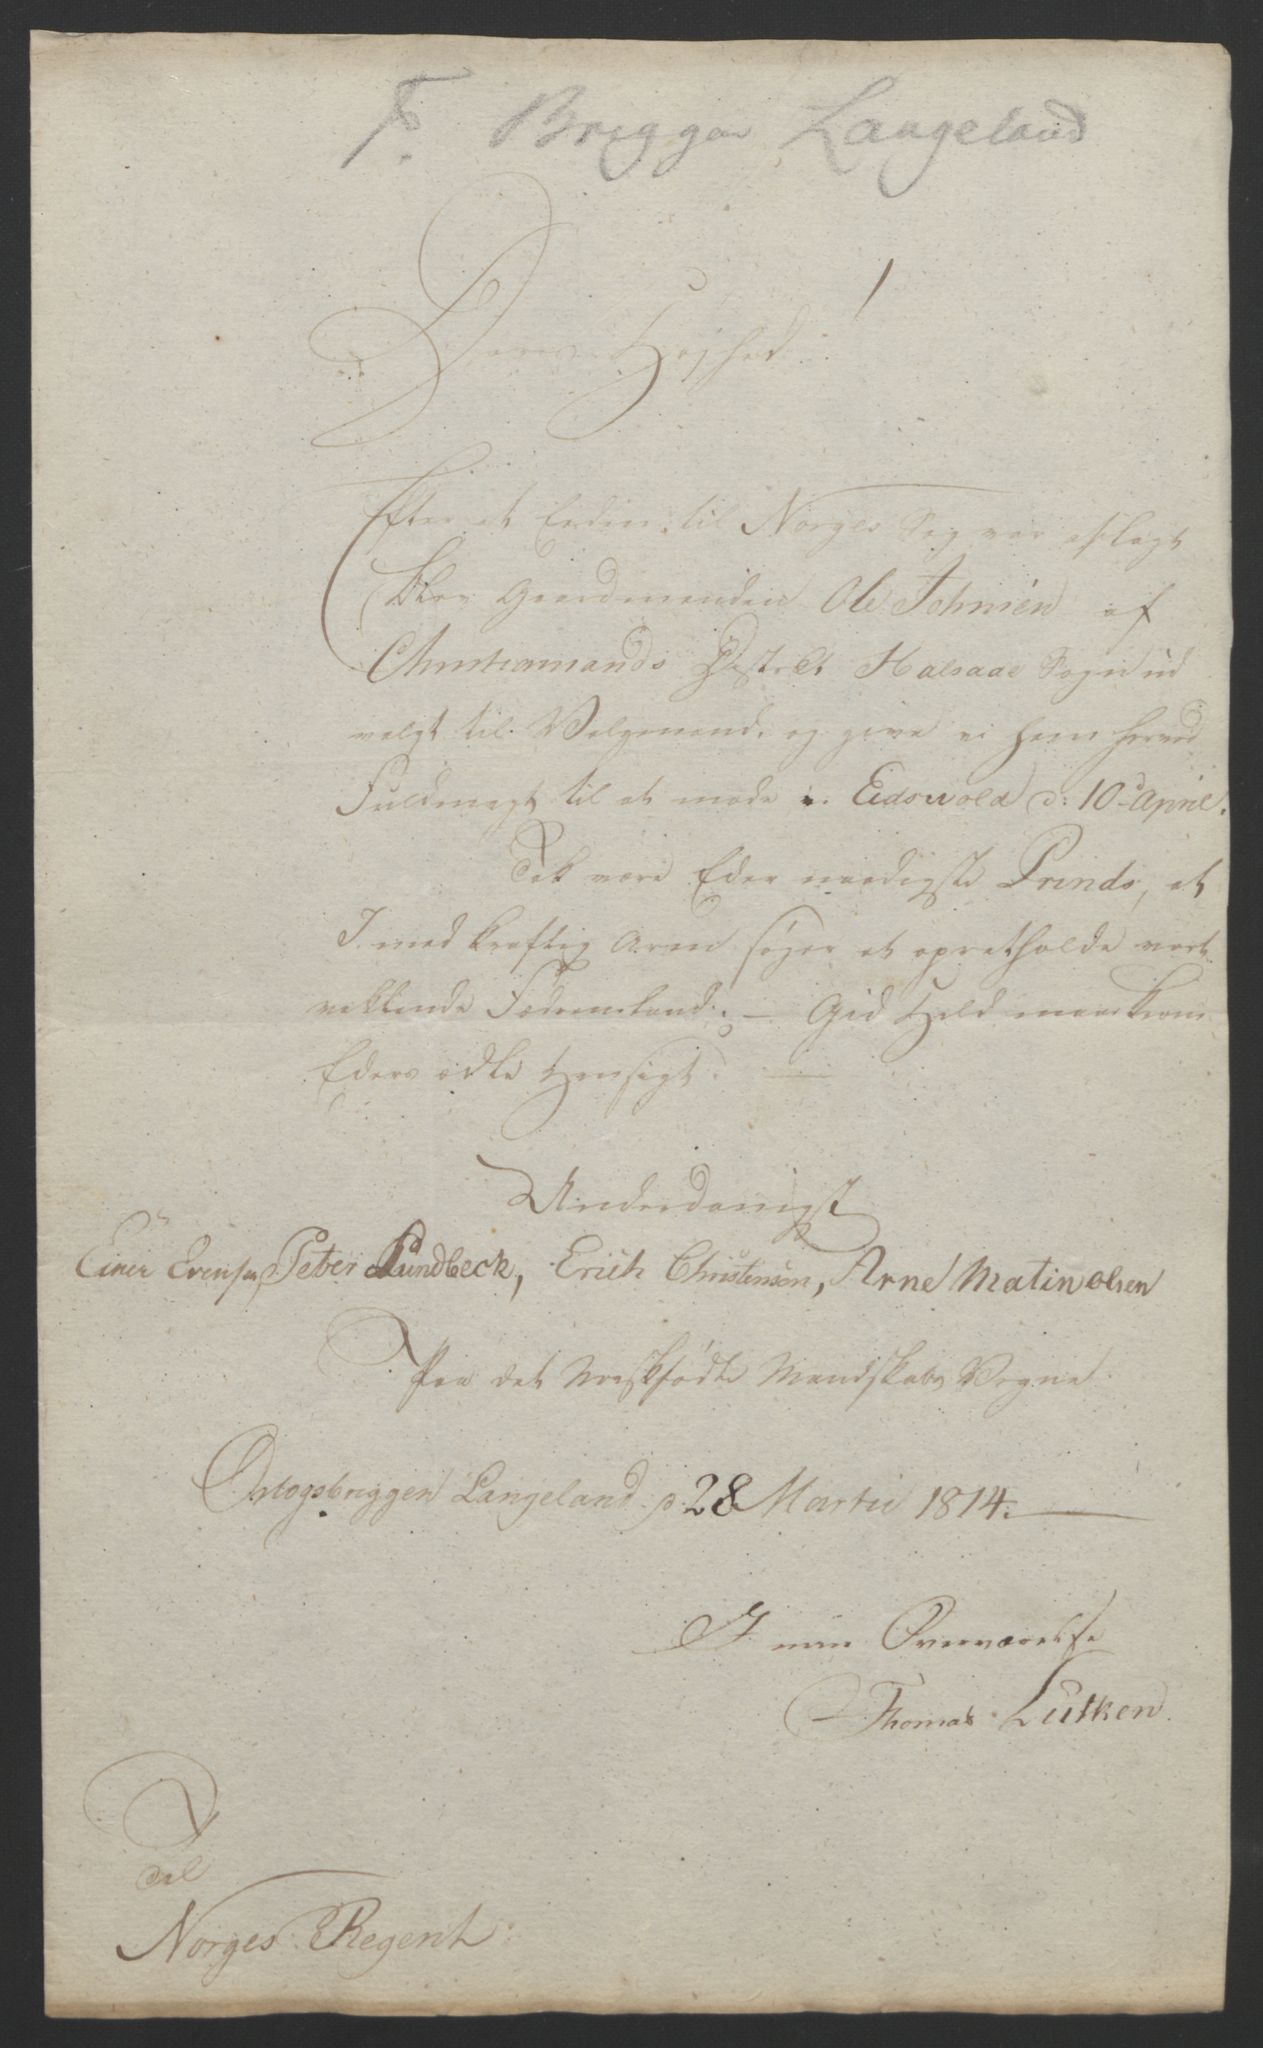 F. Briggen Langeland
1
Deres Høyhed
Efter at Eeden til Norges Sag var aflagt
blev Gaardmanden Ole Johnsen af
Christiansands District Halsaae Sogn ud
valgt til Valgmand, og give vi ham herved
Fuldmagt til at møde i Eidsvold d: 10d April.
Tak være Eder naadigste Prinds, at
I med kraftig Arm søger at opretholde vort
vaklende Fædreneland. — Gid Held maae krone
Eders ædle Hensigt. —
Underdanigst
Einer Evensen, Peter Lundbeck, Erich Christensen, Arne Matin olsen
Paa det Norskfødte Mandskabs Vegne
Orlogsbriggen Langeland d. 28 Martii 1814. —
I min Overværelse
Thomas Lütken.
Til
Norges Regent